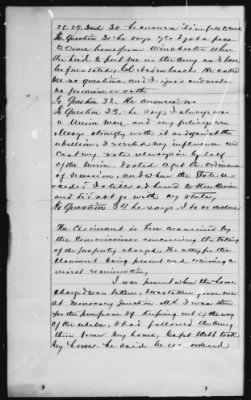 28. 29. and 30 he answers
To Question 31. he says yes I got a pass
to come home from Winchester when
they had to put me in the Army as I have
before stated,
me no questions and I signed and made
no promise or oath
To Question 32. He answers no
To Question 33, he says I always was
a Union man and my feelings were
always strongly with it as against the
rebellion, I exerted my influence and
cast my vote always in behalf
of the Union. I voted against the Ordinance
of Secession, and when the State
seceded I still adhered to the Union
and did not go with my State,
To Question 34 he says I do so declare
The Claimant is here examined by
the Commissioner concerning the taking
of the property charged, the other
claimant being present and waiving a
cross examination,
I was present when the horse
charged was taken, it was taken from me
at Monocacy Junction Md. I was there
for the purpose of keeping out of the way
of the rebels, I had followed the Army
there from my home, Capt
my horse he said he was ordered